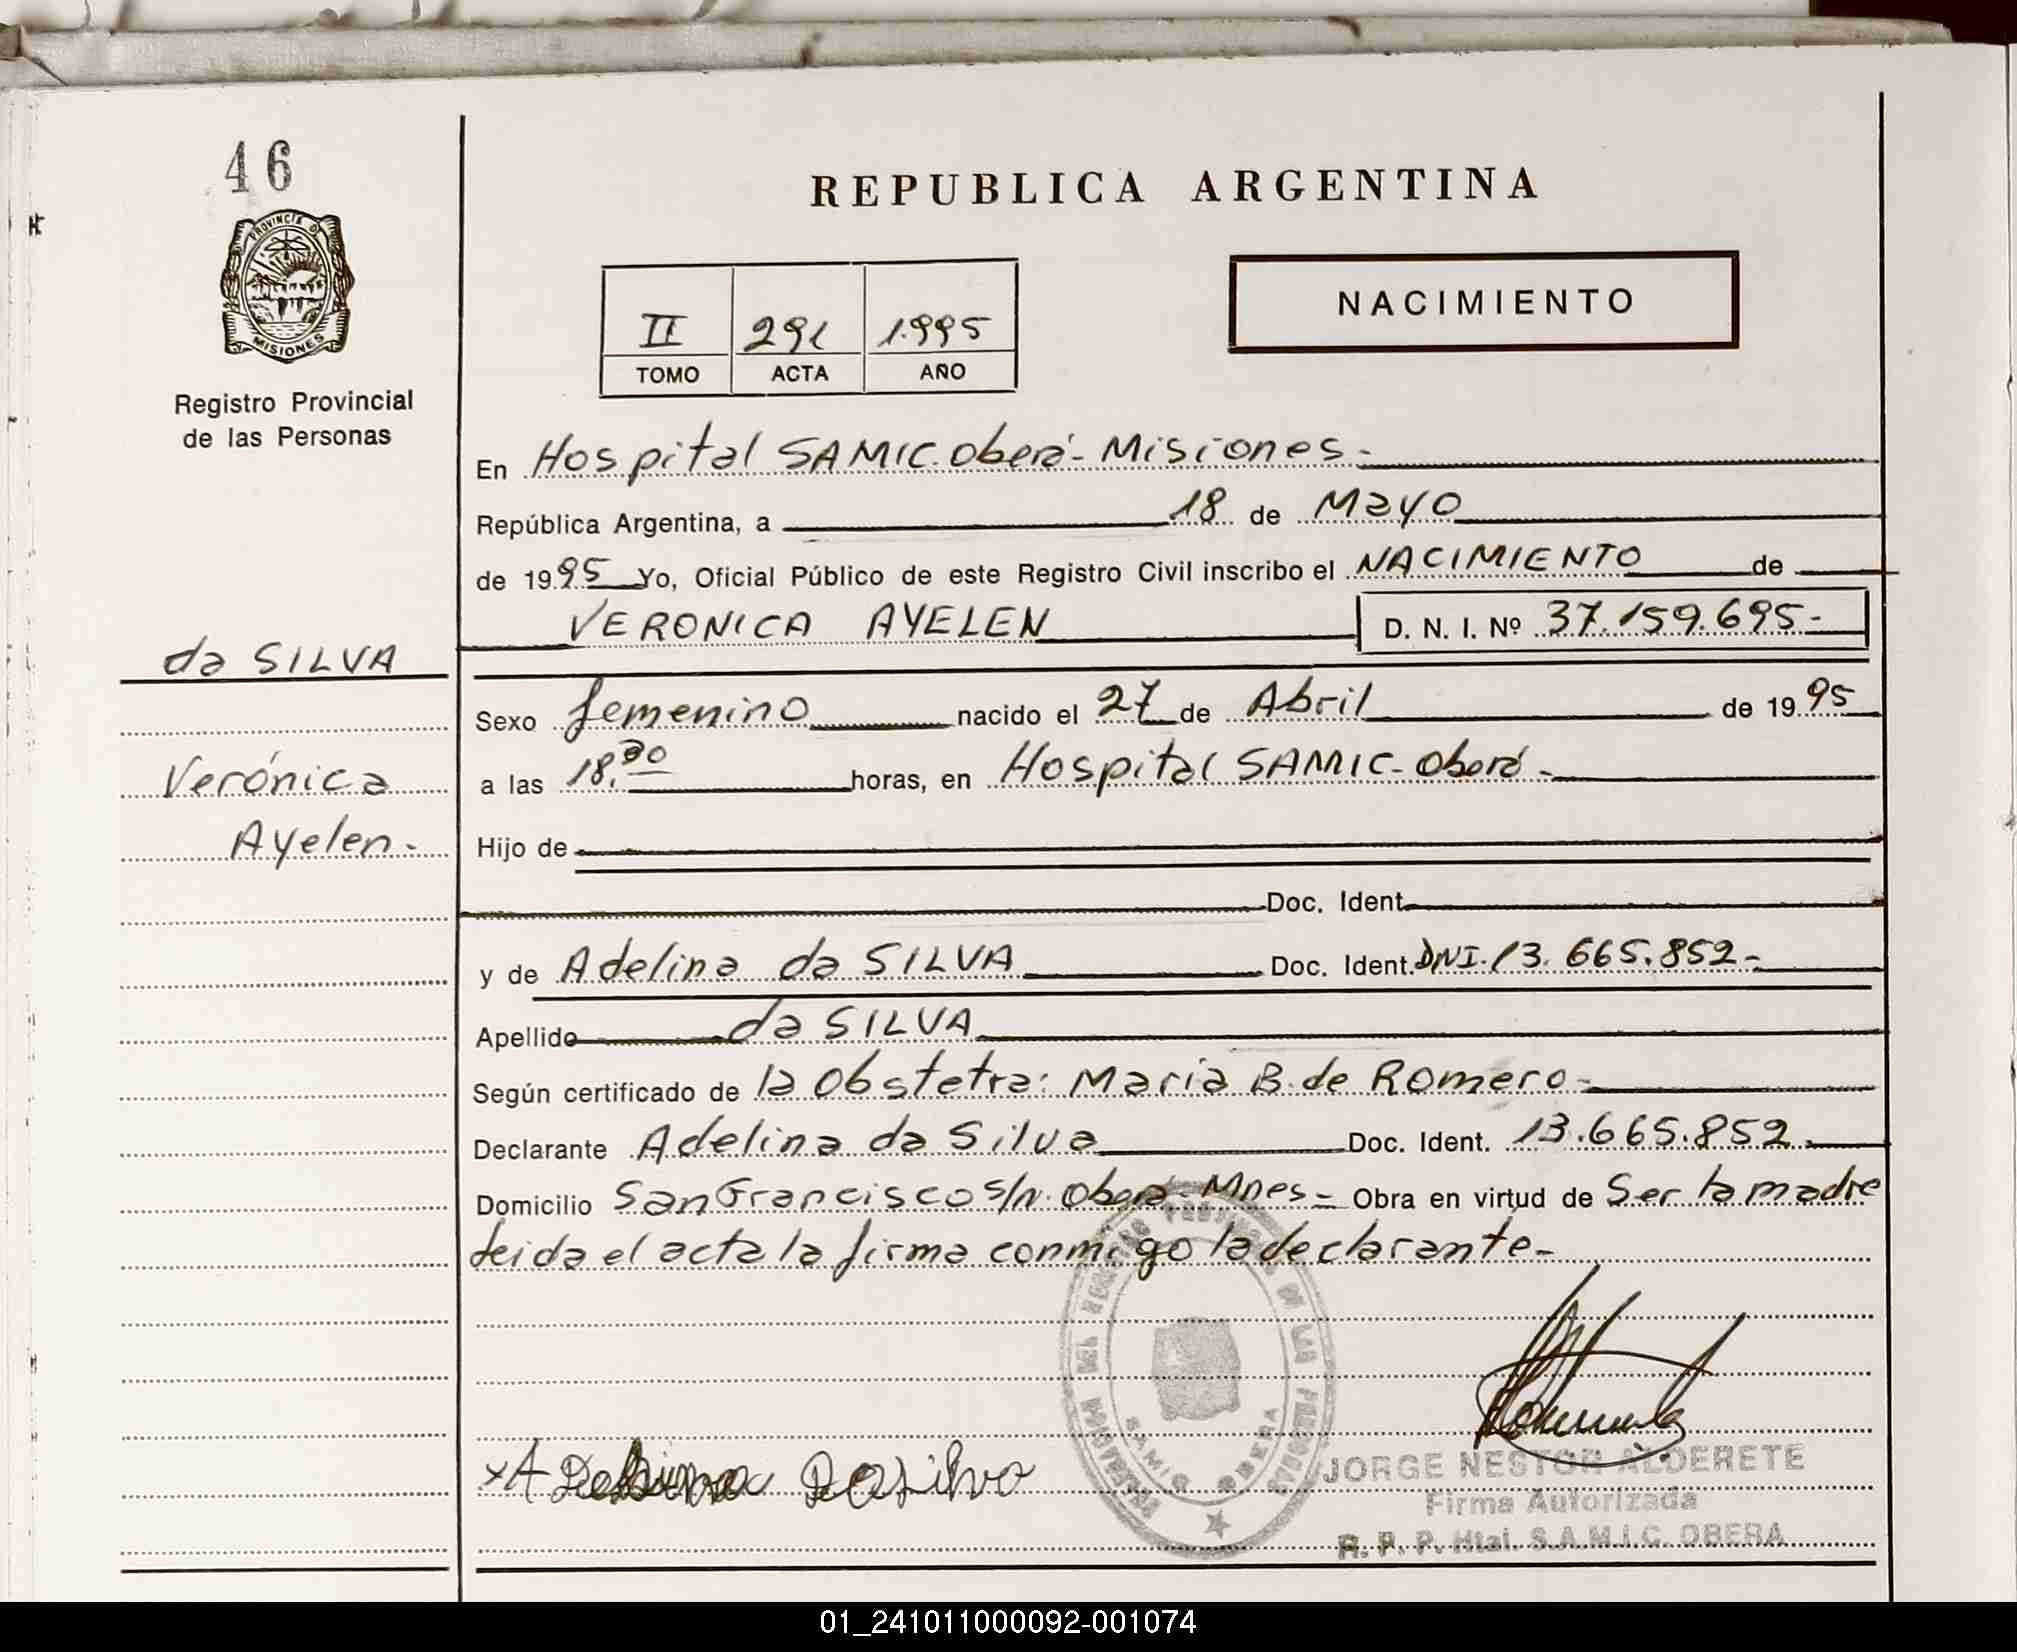 46
PROVINCIA D
MISIONES
Registro Provincial
de las Personas
REPUBLICA ARGENTINA
NACIMIENTO
II 291 1.995
TOMO ACTA AÑO
En Hospital SAMIC. Oberá - Misiones.-
República Argentina, a 18 de Mayo
de 1995 Yo, Oficial Público de este Registro Civil inscribo el NACIMIENTO de
VERONICA AYELEN D. N. I. Nº 37.159.695-
da SILVA
Verónica
Ayelen.
Sexo femenino nacido el 27 de Abril de 1995
a las 18.30 horas, en Hospital SAMIC - Oberá -
Hijo de
Doc. Ident.
y de Adelina da SILVA Doc. Ident. DNI. 13.665.852-
Apellido da SILVA
Según certificado de la Obstetra: Maria B. de Romero-
Declarante Adelina da Silva Doc. Ident. 13.665.852.
Domicilio San Francisco s/n. Oberá - Mnes - Obra en virtud de Ser la madre
leida el acta la firma conmigo la declarante-
SAMIC OBERA
x Adelina Da Silva
JORGE NESTOR ALDERETE
Firma Autorizada
R. P. P. Htal. S.A.M.I.C. OBERA
01_241011000092-001074